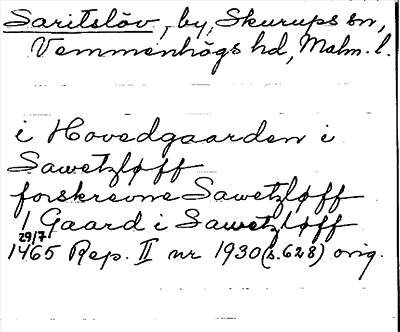 Saritslöv, by, Skurups sn,
Vemmenhögs hd, Malm. l.
i Hovedgaarden i
Sawetzløff
forskrevne Sawetzløff
1 Gaard i Sawetzløff
29/7
1465 Rep. II nr 1930 (s. 628) orig.